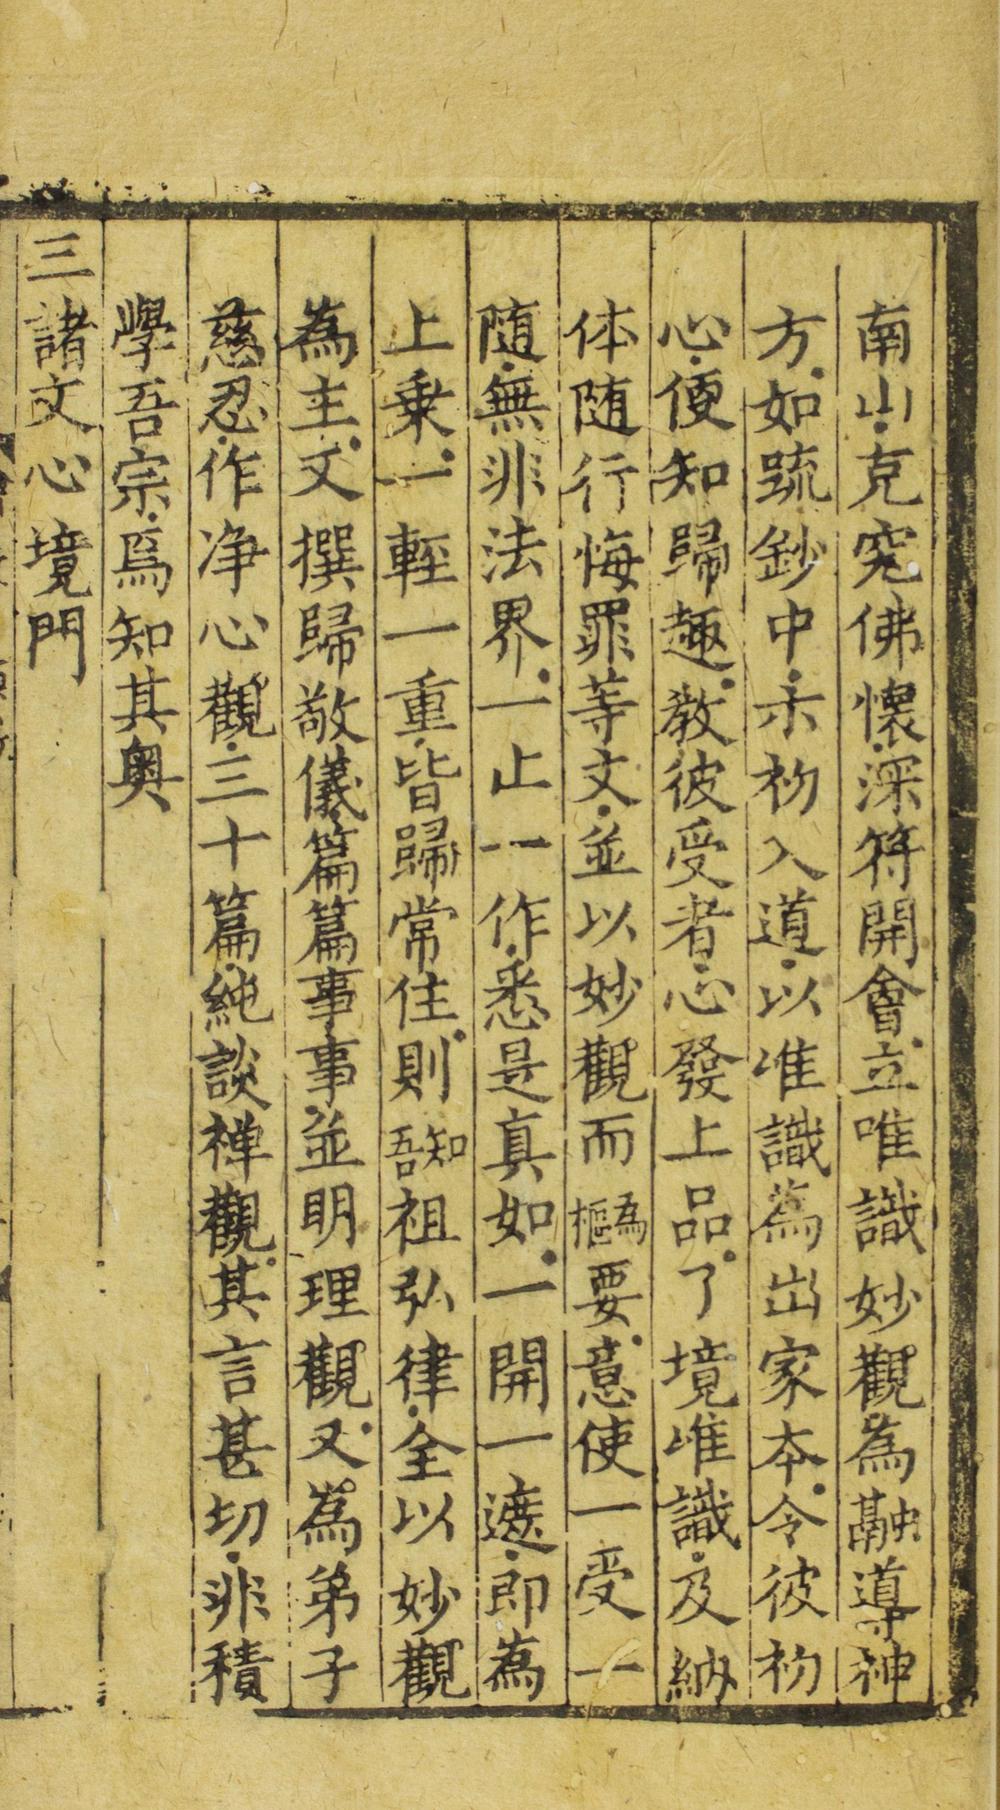 南山。克究佛懷。深符開會。立唯識妙觀。為融導神
方。如䟽鈔中。示初入道。以唯識為出家本。令彼初
心。便知歸趣。教彼受者。心發上品。了境唯識。及納
体随行。悔罪等文。並以妙觀而為樞要。意使一受一
随。無非法界。一止一作。悉是真如。一開一遮。即為
上乗。一輕一重。皆歸常住。則知吾祖弘律。全以妙觀
為主。又撰歸敬儀。篇篇事事。並明理觀。又為弟子
慈忍。作净心觀。三十篇。純談禅觀。其言甚切。非積
學吾宗。焉知其奥
三諸文心境門